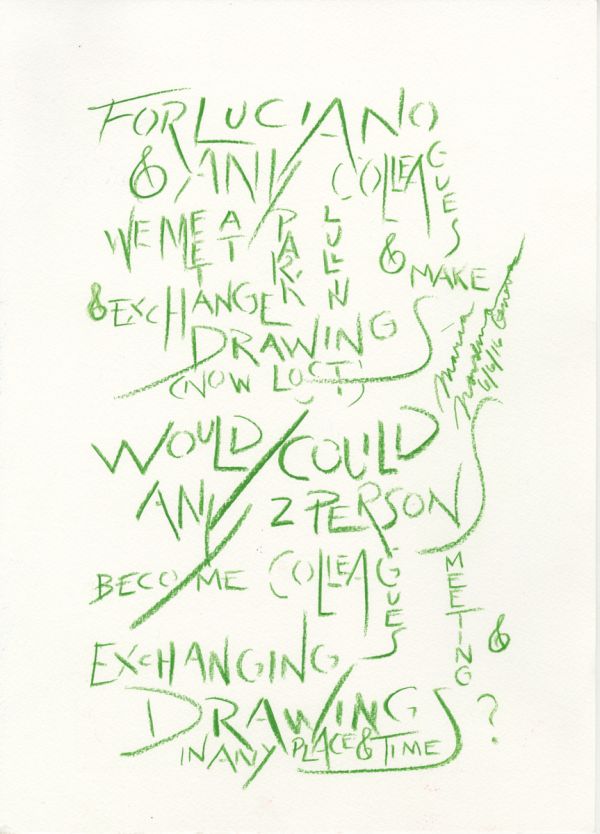 FOR LUCIANO
& ANY COLLEAGUES
WE MEET AT PARK
& MAKE
& EXCHANGE
DRAWINGS
(NOW LOST)
6/6/16
WOULD/COULD
ANY 2 PERSONS
BECOME COLLEAGUES MEETING &
EXCHANGING
DRAWINGS?
IN ANY PLACE & TIME